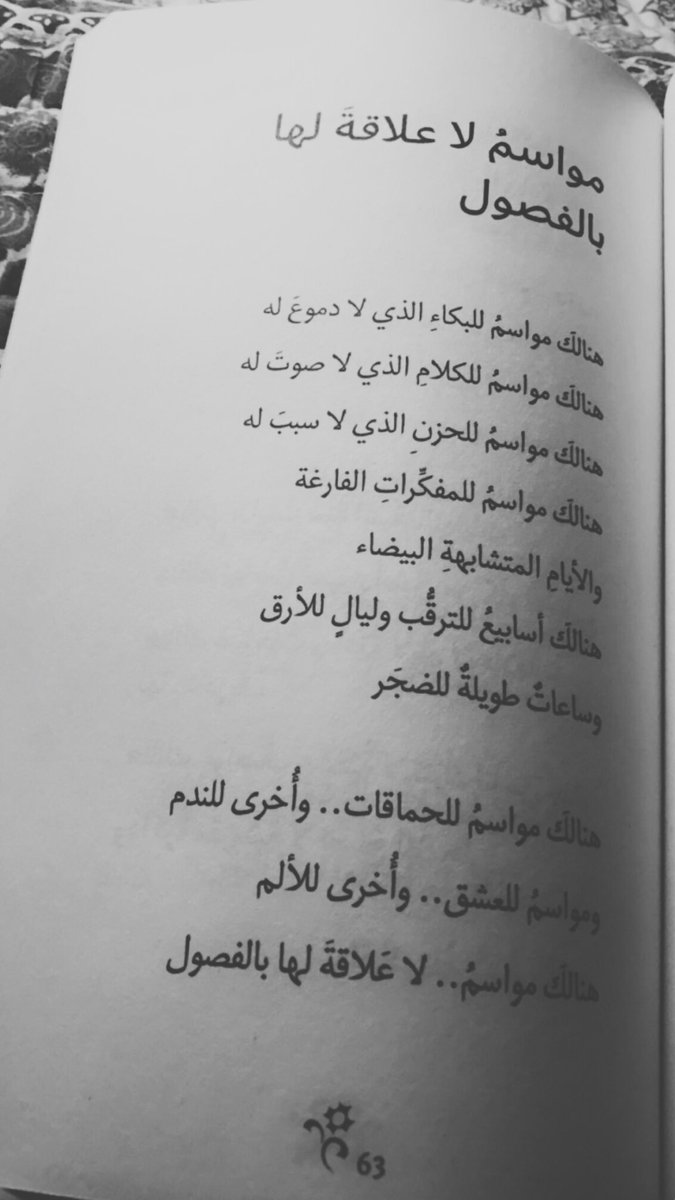 مواسمُ لا علاقةَ لها
بالفصول
هنالكَ مواسمُ للبكاءِ الذي لا دموعَ له
هنالكَ مواسمُ للكلامِ الذي لا صوتَ له
هنالكَ مواسمُ للحزنِ الذي لا سببَ له
هنالكَ مواسمُ للمفكِّراتِ الفارغة
والأيامِ المتشابهةِ البيضاء
هنالكَ أسابيعُ للترقُّب وليالٍ للأرق
وساعاتٌ طويلةٌ للضجَر
هنالكَ مواسمُ للحماقات.. وأُخرى للندم
ومواسمُ للعشق.. وأُخرى للألم
هنالكَ مواسمُ.. لا عَلاقةَ لها بالفصول
63